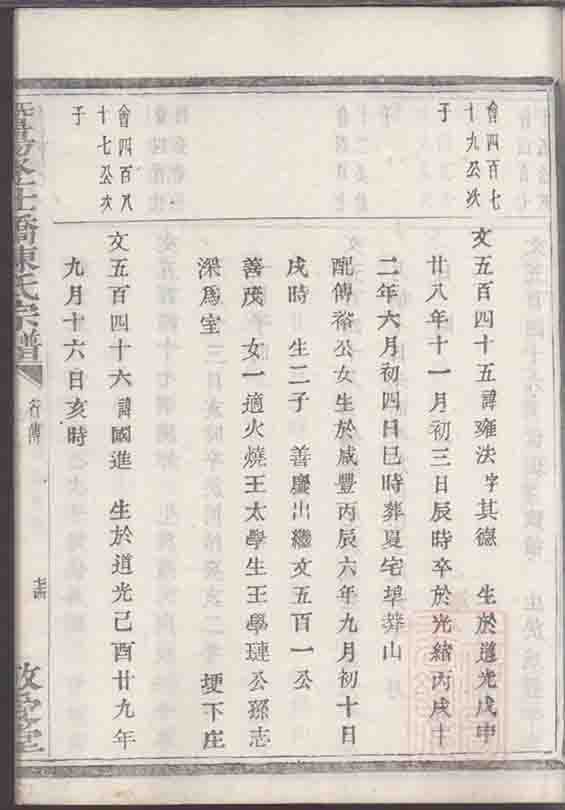 會四百七
十九公次
于
文五百四十五諱雍法字其德 生於道光戊申
廿八年十一月初三日辰時卒於光緒丙戌十
二年六月初四日巳時葬夏宅埠莽山
配傅裕公女生於咸豐丙辰六年九月初十日
戌時 生二子 善慶出繼文五百一公
善茂 女一適火燒王太學生王學璉公孫志
深爲室 埂下庄
會四百八
十七公次
于
文五百四十六諱國進 生於道光己酉廿九年
九月十六日亥時
橋陳氏宗譜
行傳
敦
堂